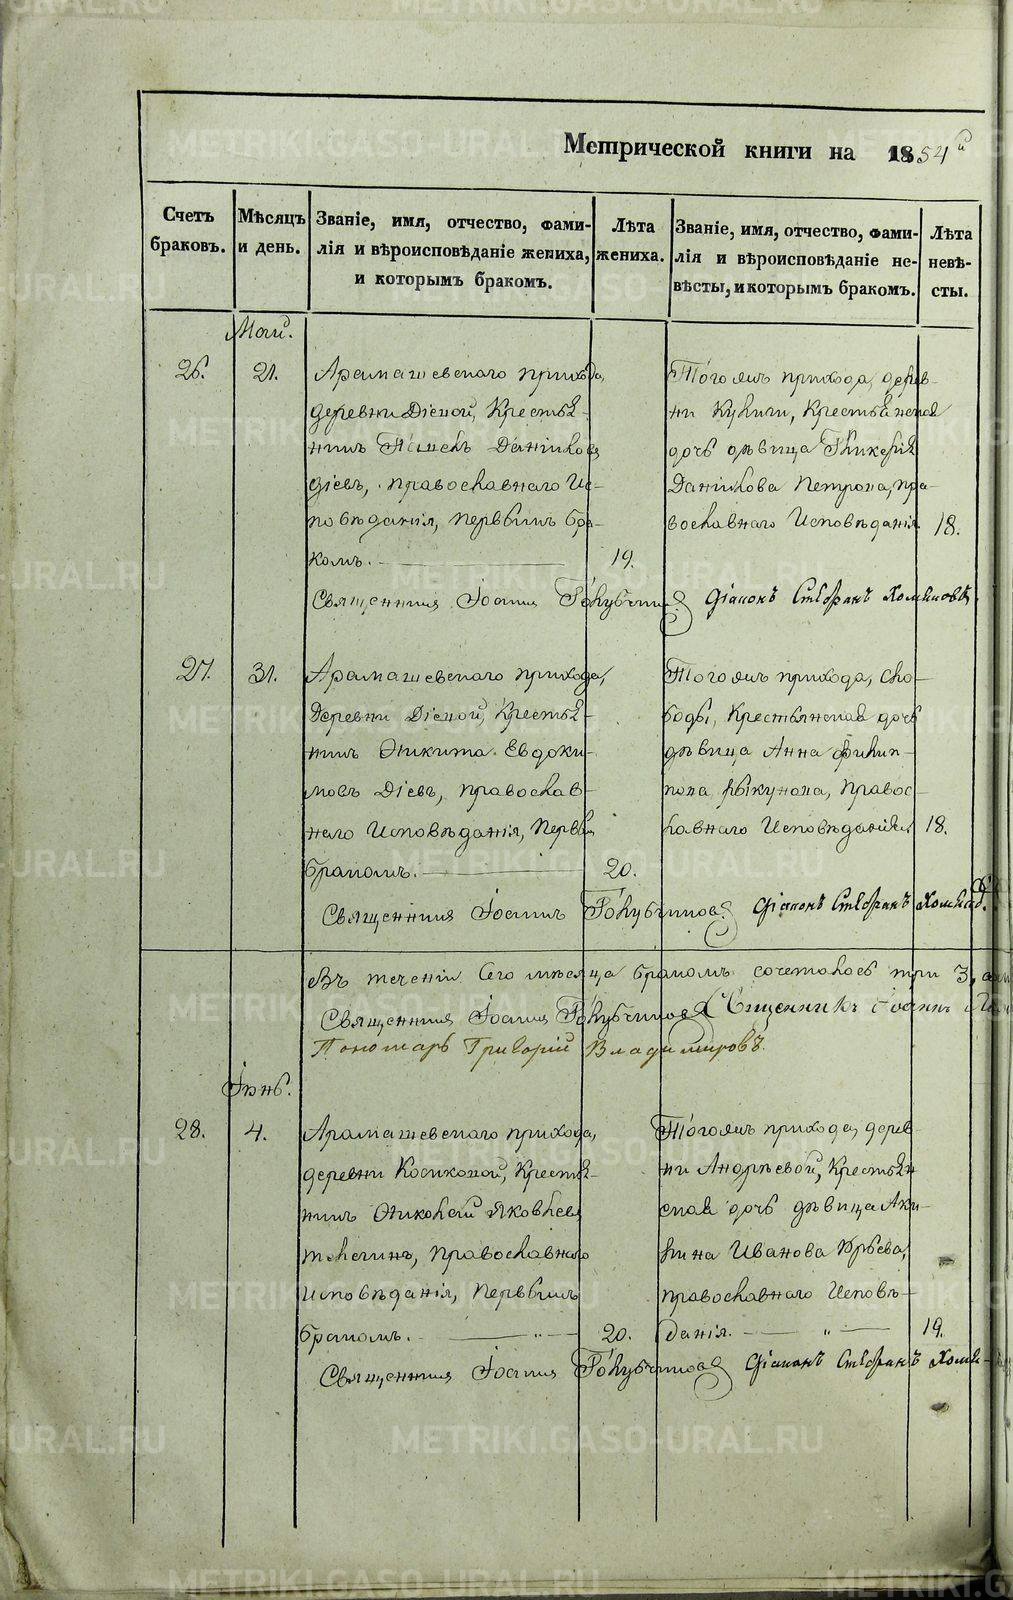 Метрической книги на 1854й
Счетъ браковъ.
Мѣсяцъ и день.
Званіе, имя, отчество, фами-
лія и вѣроисповѣданіе жениха,
и которымъ бракомъ.
Лѣта жениха.
Званіе, имя, отчество, фами-
лія и вѣроисповѣданіе не-
вѣсты, и которымъ бракомъ.
Лѣта невѣ-
сты.
Май.
26.
21.
Арамашевскаго прихода,
деревни Дiевой, Крестья-
нинъ Даниловъ
Діевъ, православнаго Ис-
повѣданія, первымъ бра-
комъ.
19.
Того жъ прихода, дерев-
ни Крестьянская
дочь дѣвица Гликерія
Данилова Петрова, пра-
вославнаго Исповѣданія
18.
Священникъ Іоаннъ Голубчиковъ Діаконъ Стефанъ
27.
31.
Арамашевскаго прихода,
Деревни Дiевой, Крестья-
нинъ Никита Евдоки-
мовъ Діевъ, православ-
наго Исповѣданія, первы
бракомъ.
20.
Того жъ прихода, сло-
боды, Крестьянская дочь
дѣвица Анна Филип-
пова Рякунова, правос-
лавнаго Исповѣданія
18.
Священникъ Іоаннъ Голубчиковъ Діаконъ Стефанъ
Въ теченіи Сего мѣсяца бракомъ сочеталось три 3,
Священникъ Іоаннъ Голубчиковъ Священникъ Іоаннъ
Пономарь Григорій Владимировъ.
Іюнь.
28.
4.
Арамашевскаго прихода,
деревни Косиковой, Крестья-
нинъ Николай Яковлев
православнаго
Исповѣданія, первымъ
бракомъ.
20.
Того жъ прихода, дерев-
ни Андрѣевой, Крестьян
ская дочь дѣвица Аки-
лина Иванова
православнаго Исповѣ-
данія.
19.
Священникъ Іоаннъ Голубчиковъ Діаконъ Стефанъ
METRIKI.GASO-URAL.RU